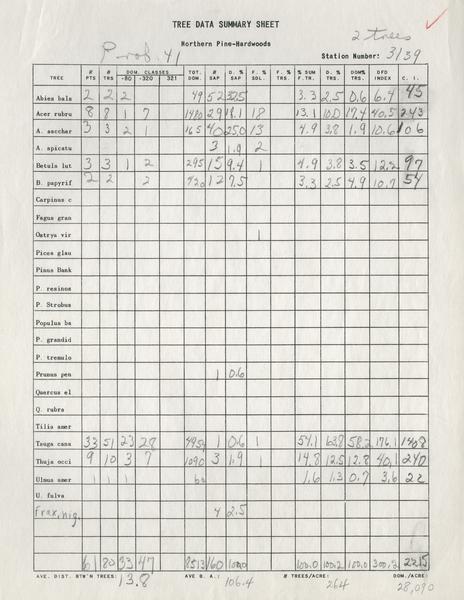 TREE DATA SUMMARY SHEET
2 trees
Northern Pine-Hardwoods
Prob. 41
Station Number: 3139
TREE # PTS # TRS DOM. CLASSES -80 -320 321 TOT. DOM. # SAP D. % SAP F. % SDL. F. % TRS. % SUM F.TR. D. % TRS. DOM% TRS. DFD INDEX C. I.
Abies bals 2 2 2 49 52 32.5 3.3 2.5 0.6 6.4 45
Acer rubru 8 8 1 7 1480 29 18.1 18 13.1 10.0 17.4 40.5 243
A. sacchar 3 3 2 1 165 40 25.0 13 4.9 3.8 1.9 10.6 106
A. spicatu 3 1.9 2
Betula lut 3 3 1 2 295 15 9.4 1 4.9 3.8 3.5 12.2 97
B. papyrif 2 2 2 420 12 7.5 3.3 2.5 4.9 10.7 54
Carpinus c
Fagus gran
Ostrya vir 1
Picea glau
Pinus Bank
P. resinos
P. Strobus
Populus ba
P. grandid
P. tremulo
Prunus pen 1 0.6
Quercus el
Q. rubra
Tilia amer
Tsuga cana 33 51 23 28 4954 1 0.6 1 54.1 63.8 58.2 176.1 1408
Thuja occi 9 10 3 7 1090 3 1.9 1 14.8 12.5 12.8 40.1 240
Ulmus amer 1 1 1 60 1.6 1.3 0.7 3.6 22
U. fulva
Frax. nig. 4 2.5
61 80 33 47 8513 160 100.0 100.0 100.2 100.0 300.2 2215
AVE. DIST. BTW'N TREES: 13.8 AVE B. A.: 106.4 # TREES/ACRE: 264 DOM./ACRE: 28,090